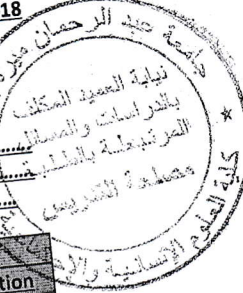 18
جامعة عبد الرحمان ميرة
نيابة العميد المكلف
بالدراسات والمسائل
المرتبطة بالطلبة
مصلحة التدريس
كلية العلوم الإنسانية
tion